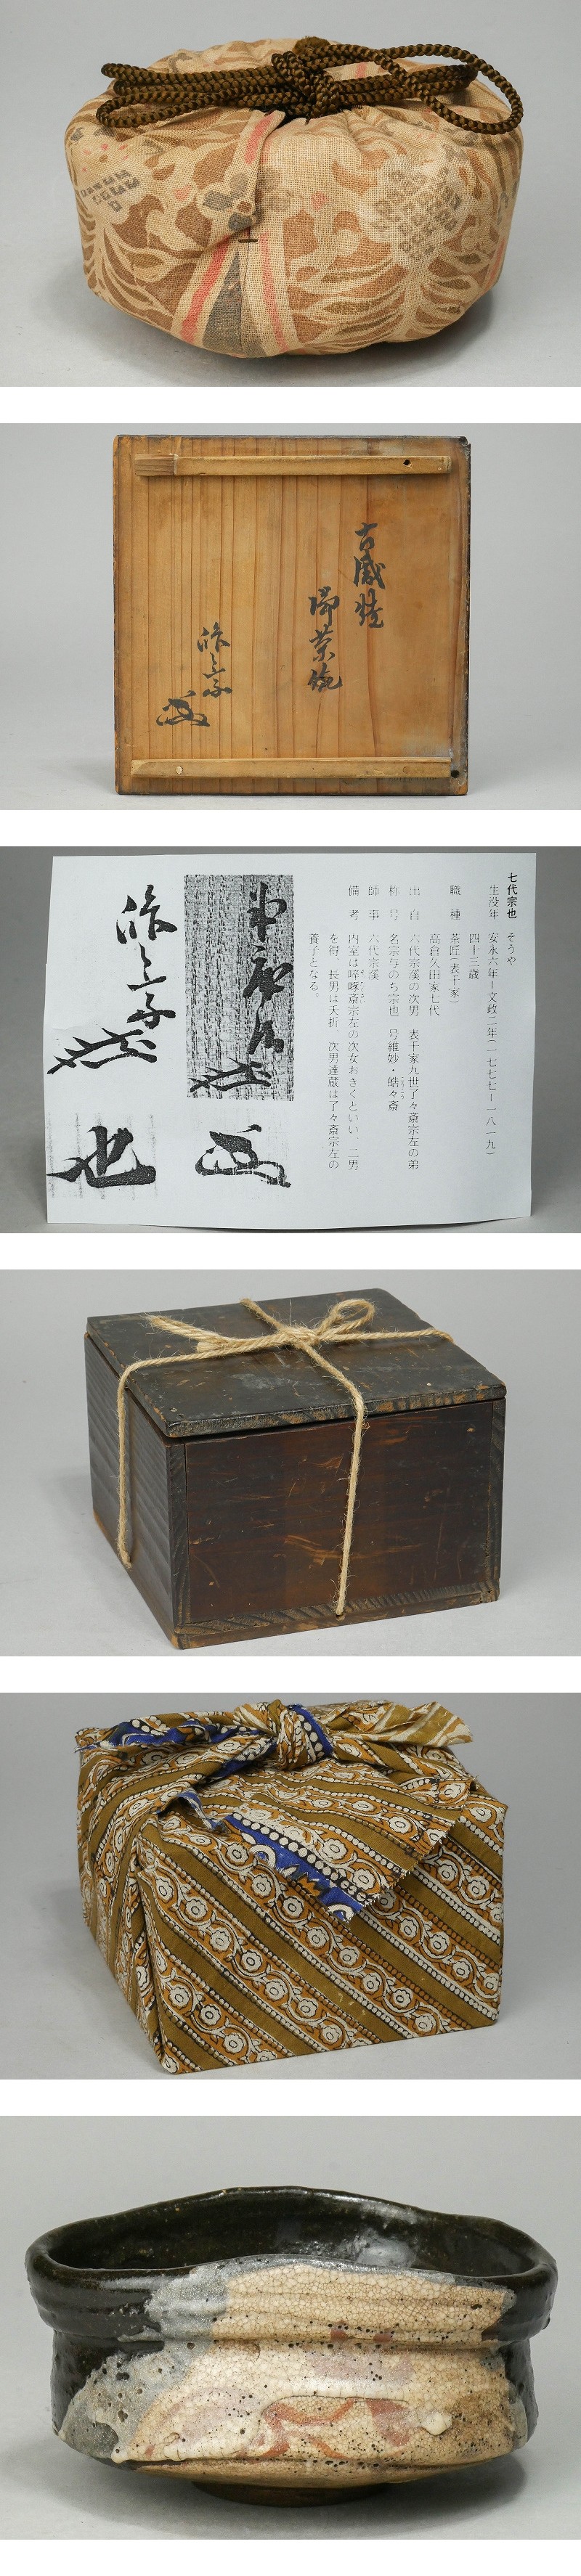 古織焼
御茶碗
七代宗也 そうや
生没年 安永六年ー文政二年(一七七七ー一八一九)
四十三歳
職種 茶匠(表千家)
高倉久田家七代
出自 六代宗渓の次男 表千家九世了々斎宗左の弟
称号 名宗与のち宗也 号維妙・皓々斎
師事 六代宗渓
備考 内室は啐啄斎宗左の次女おきくといい、二男
を得、長男は夭折、次男達蔵は了々斎宗左の
養子となる。
也